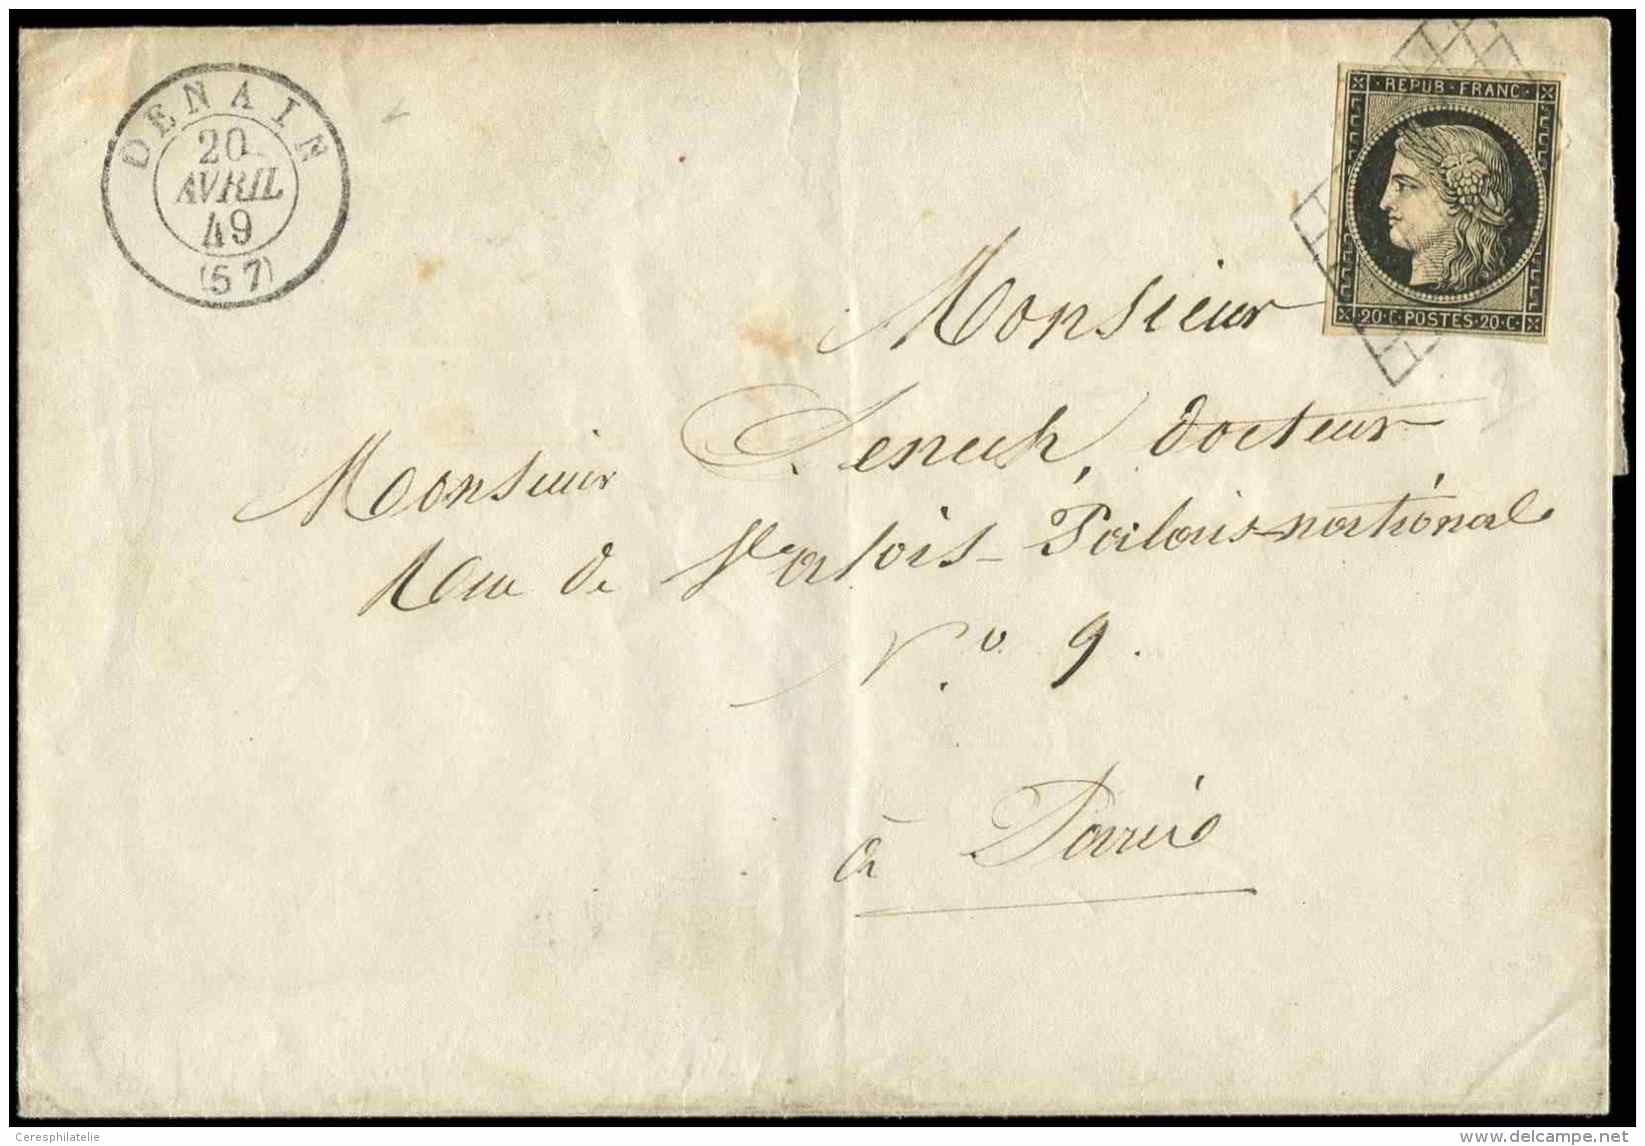 DENAIN
20
AVRIL
49
(57)
REPUB · FRANC ·
20 · C · POSTES · 20 · C ·
Monsieur
Monsieur docteur
Rue de Valois - Palais-national
N.o 9.
à Paris
Ceresphilatelie
www.delcampe.net